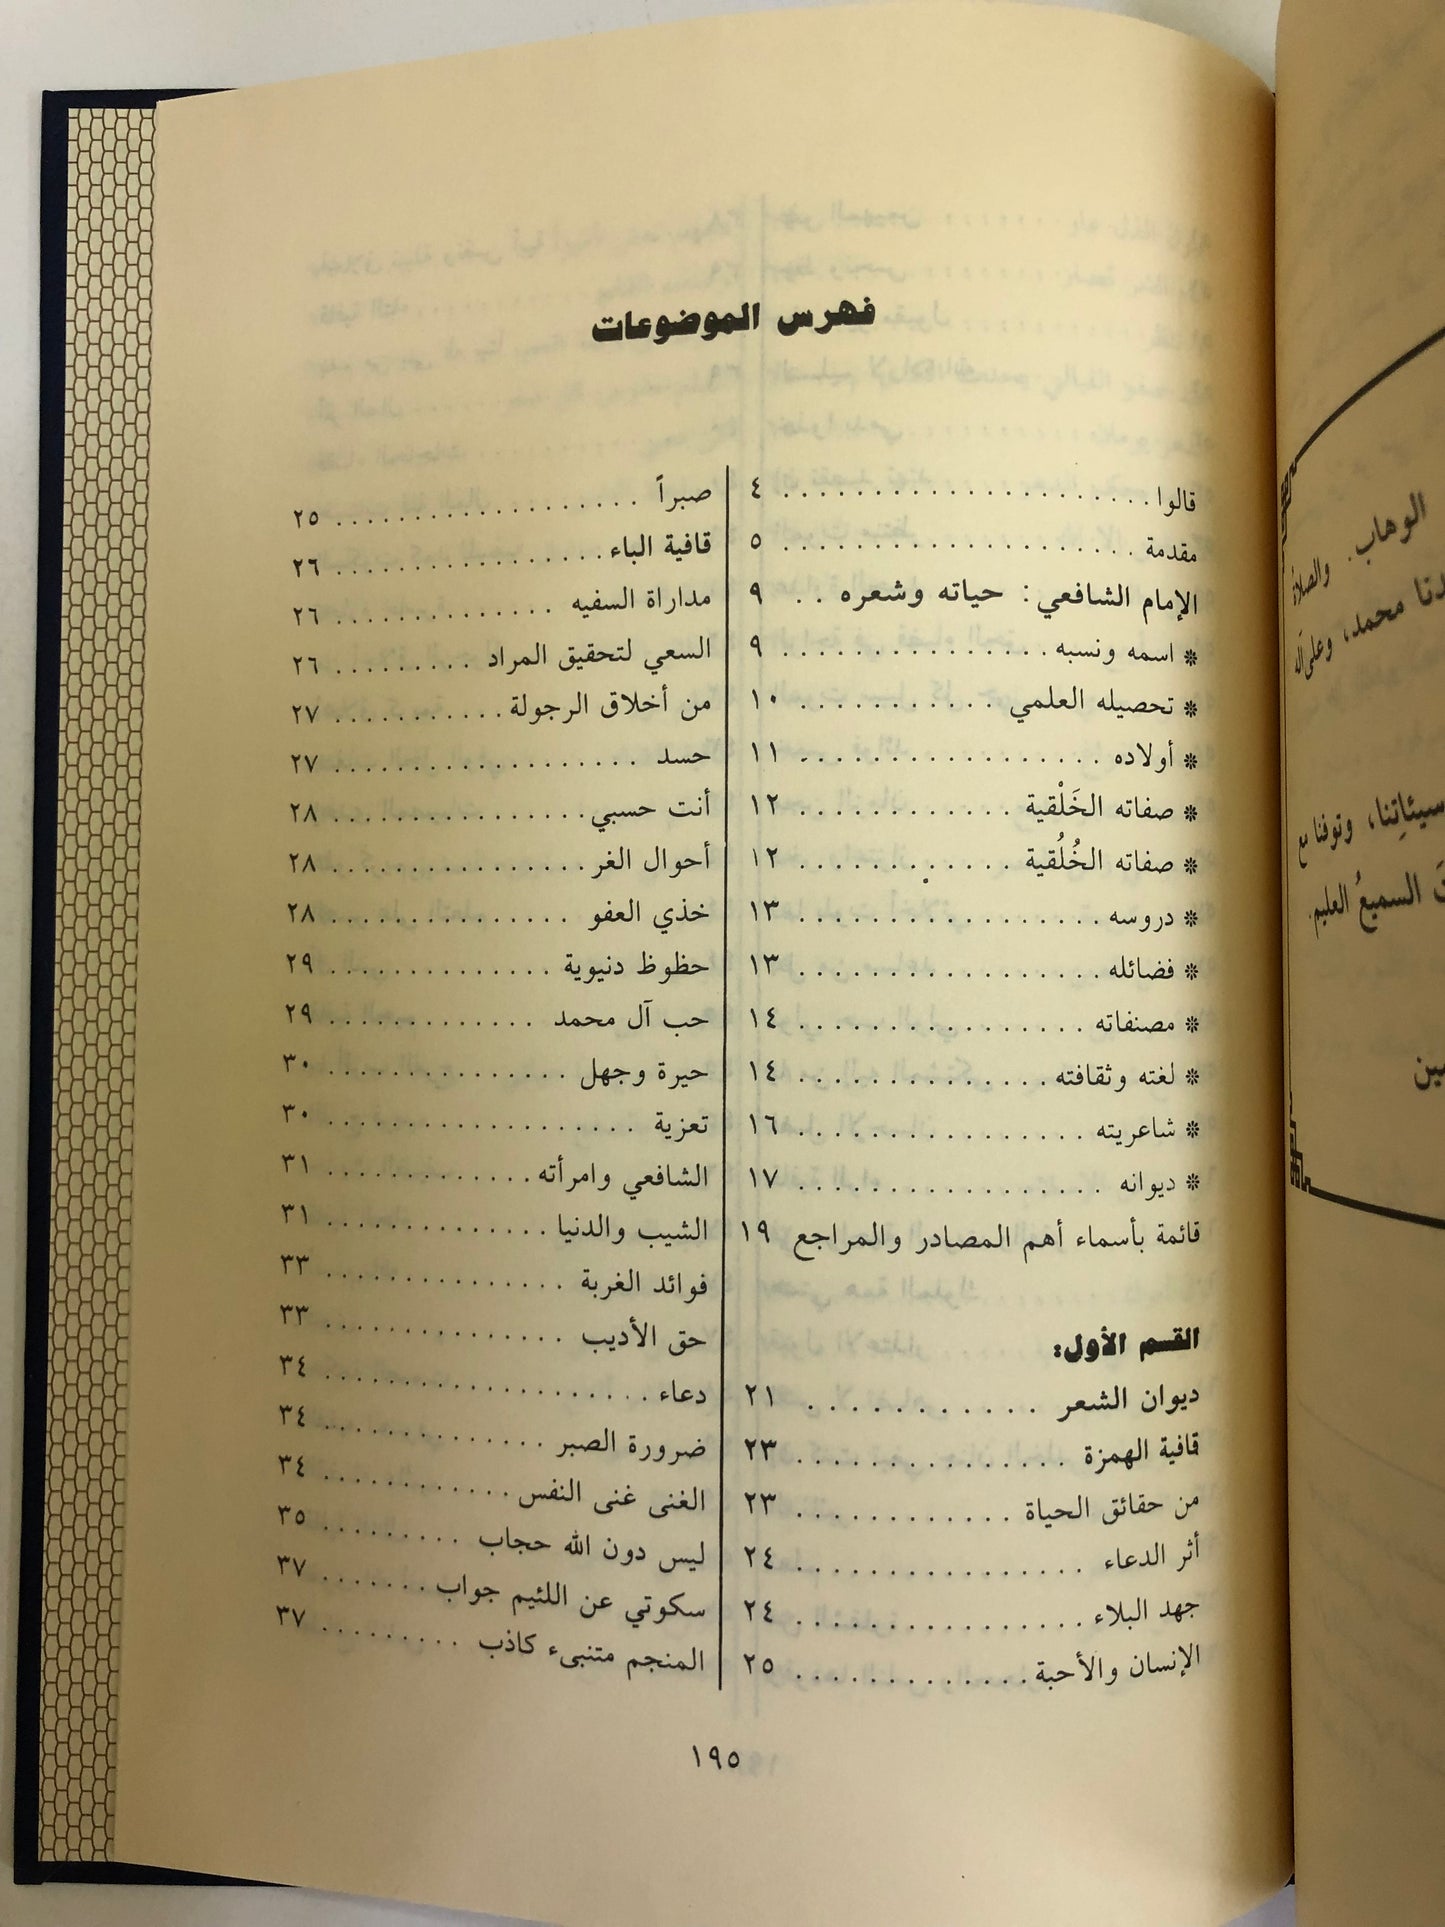 فهرس الموضوعات
قالوا . . . . . . . . . . . . . . . . . . . . . ٤
مقدمة . . . . . . . . . . . . . . . . . . . . ٥
الإمام الشافعي: حياته وشعره . . ٩
* اسمه ونسبه . . . . . . . . . . . . . . . ٩
* تحصيله العلمي . . . . . . . . . . . ١٠
* أولاده . . . . . . . . . . . . . . . . . ١١
* صفاته الخَلْقية . . . . . . . . . . . ١٢
* صفاته الخُلُقية . . . . . . . . . . . ١٢
* دروسه . . . . . . . . . . . . . . . . . ١٣
* فضائله . . . . . . . . . . . . . . . . . ١٣
* مصنفاته . . . . . . . . . . . . . . . . ١٤
* لغته وثقافته . . . . . . . . . . . . . . ١٤
* شاعريته . . . . . . . . . . . . . . . . ١٦
* ديوانه . . . . . . . . . . . . . . . . . ١٧
قائمة بأسماء أهم المصادر والمراجع ١٩
القسم الأول:
ديوان الشعر . . . . . . . . . . . ٢١
قافية الهمزة . . . . . . . . . . . . . . . ٢٣
من حقائق الحياة . . . . . . . . . . . . ٢٣
أثر الدعاء . . . . . . . . . . . . . . . . ٢٤
جهد البلاء . . . . . . . . . . . . . . . . ٢٤
الإنسان والأحبة . . . . . . . . . . . . . ٢٥
صبراً . . . . . . . . . . . . . . . . . . ٢٥
قافية الباء . . . . . . . . . . . . . . . . ٢٦
مداراة السفيه . . . . . . . . . . . . . ٢٦
السعي لتحقيق المراد . . . . . . . . ٢٦
من أخلاق الرجولة . . . . . . . . . . ٢٧
حسد . . . . . . . . . . . . . . . . . . ٢٧
أنت حسبي . . . . . . . . . . . . . . . ٢٨
أحوال الغر . . . . . . . . . . . . . . . ٢٨
خذي العفو . . . . . . . . . . . . . . ٢٨
حظوظ دنيوية . . . . . . . . . . . . . ٢٩
حب آل محمد . . . . . . . . . . . . ٢٩
حيرة وجهل . . . . . . . . . . . . . . ٣٠
تعزية . . . . . . . . . . . . . . . . . . ٣٠
الشافعي وامرأته . . . . . . . . . . . . ٣١
الشيب والدنيا . . . . . . . . . . . . . ٣١
فوائد الغربة . . . . . . . . . . . . . . ٣٣
حق الأديب . . . . . . . . . . . . . . ٣٣
دعاء . . . . . . . . . . . . . . . . . . . ٣٤
ضرورة الصبر . . . . . . . . . . . . . ٣٤
الغنى غنى النفس . . . . . . . . . . . ٣٤
ليس دون الله حجاب . . . . . . . . . ٣٥
سكوتي عن اللئيم جواب . . . . . . . ٣٧
المنجم متنبىء كاذب . . . . . . . . . ٣٧
١٩٥
الوهاب. والصلاة
محمد، وعلى آله
سيئاتِنا، وتوفنا مع
السميعُ العليم.